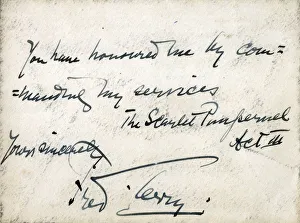 You have honoured me by com=
=manding my services
The Scarlet Pimpernel
Act III
Yours sincerely
Fred Terry